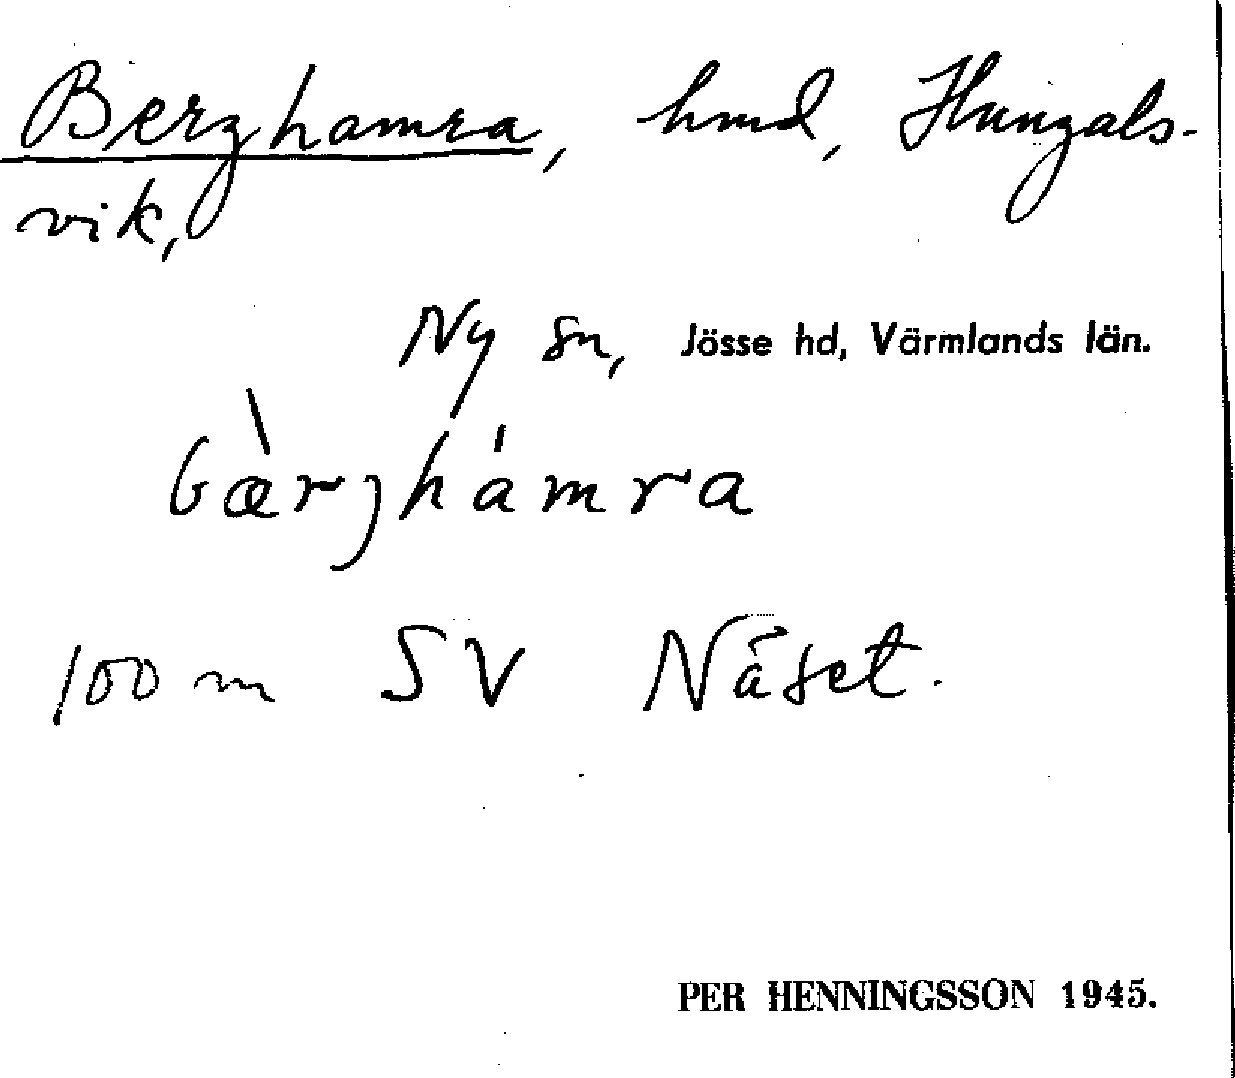 Berghamra, hmd, Hungals-
vik,
Ny sn, Jösse hd, Värmlands län.
bæ̀rjhámra
100 m SV Näset.
PER HENNINGSSON 1945.